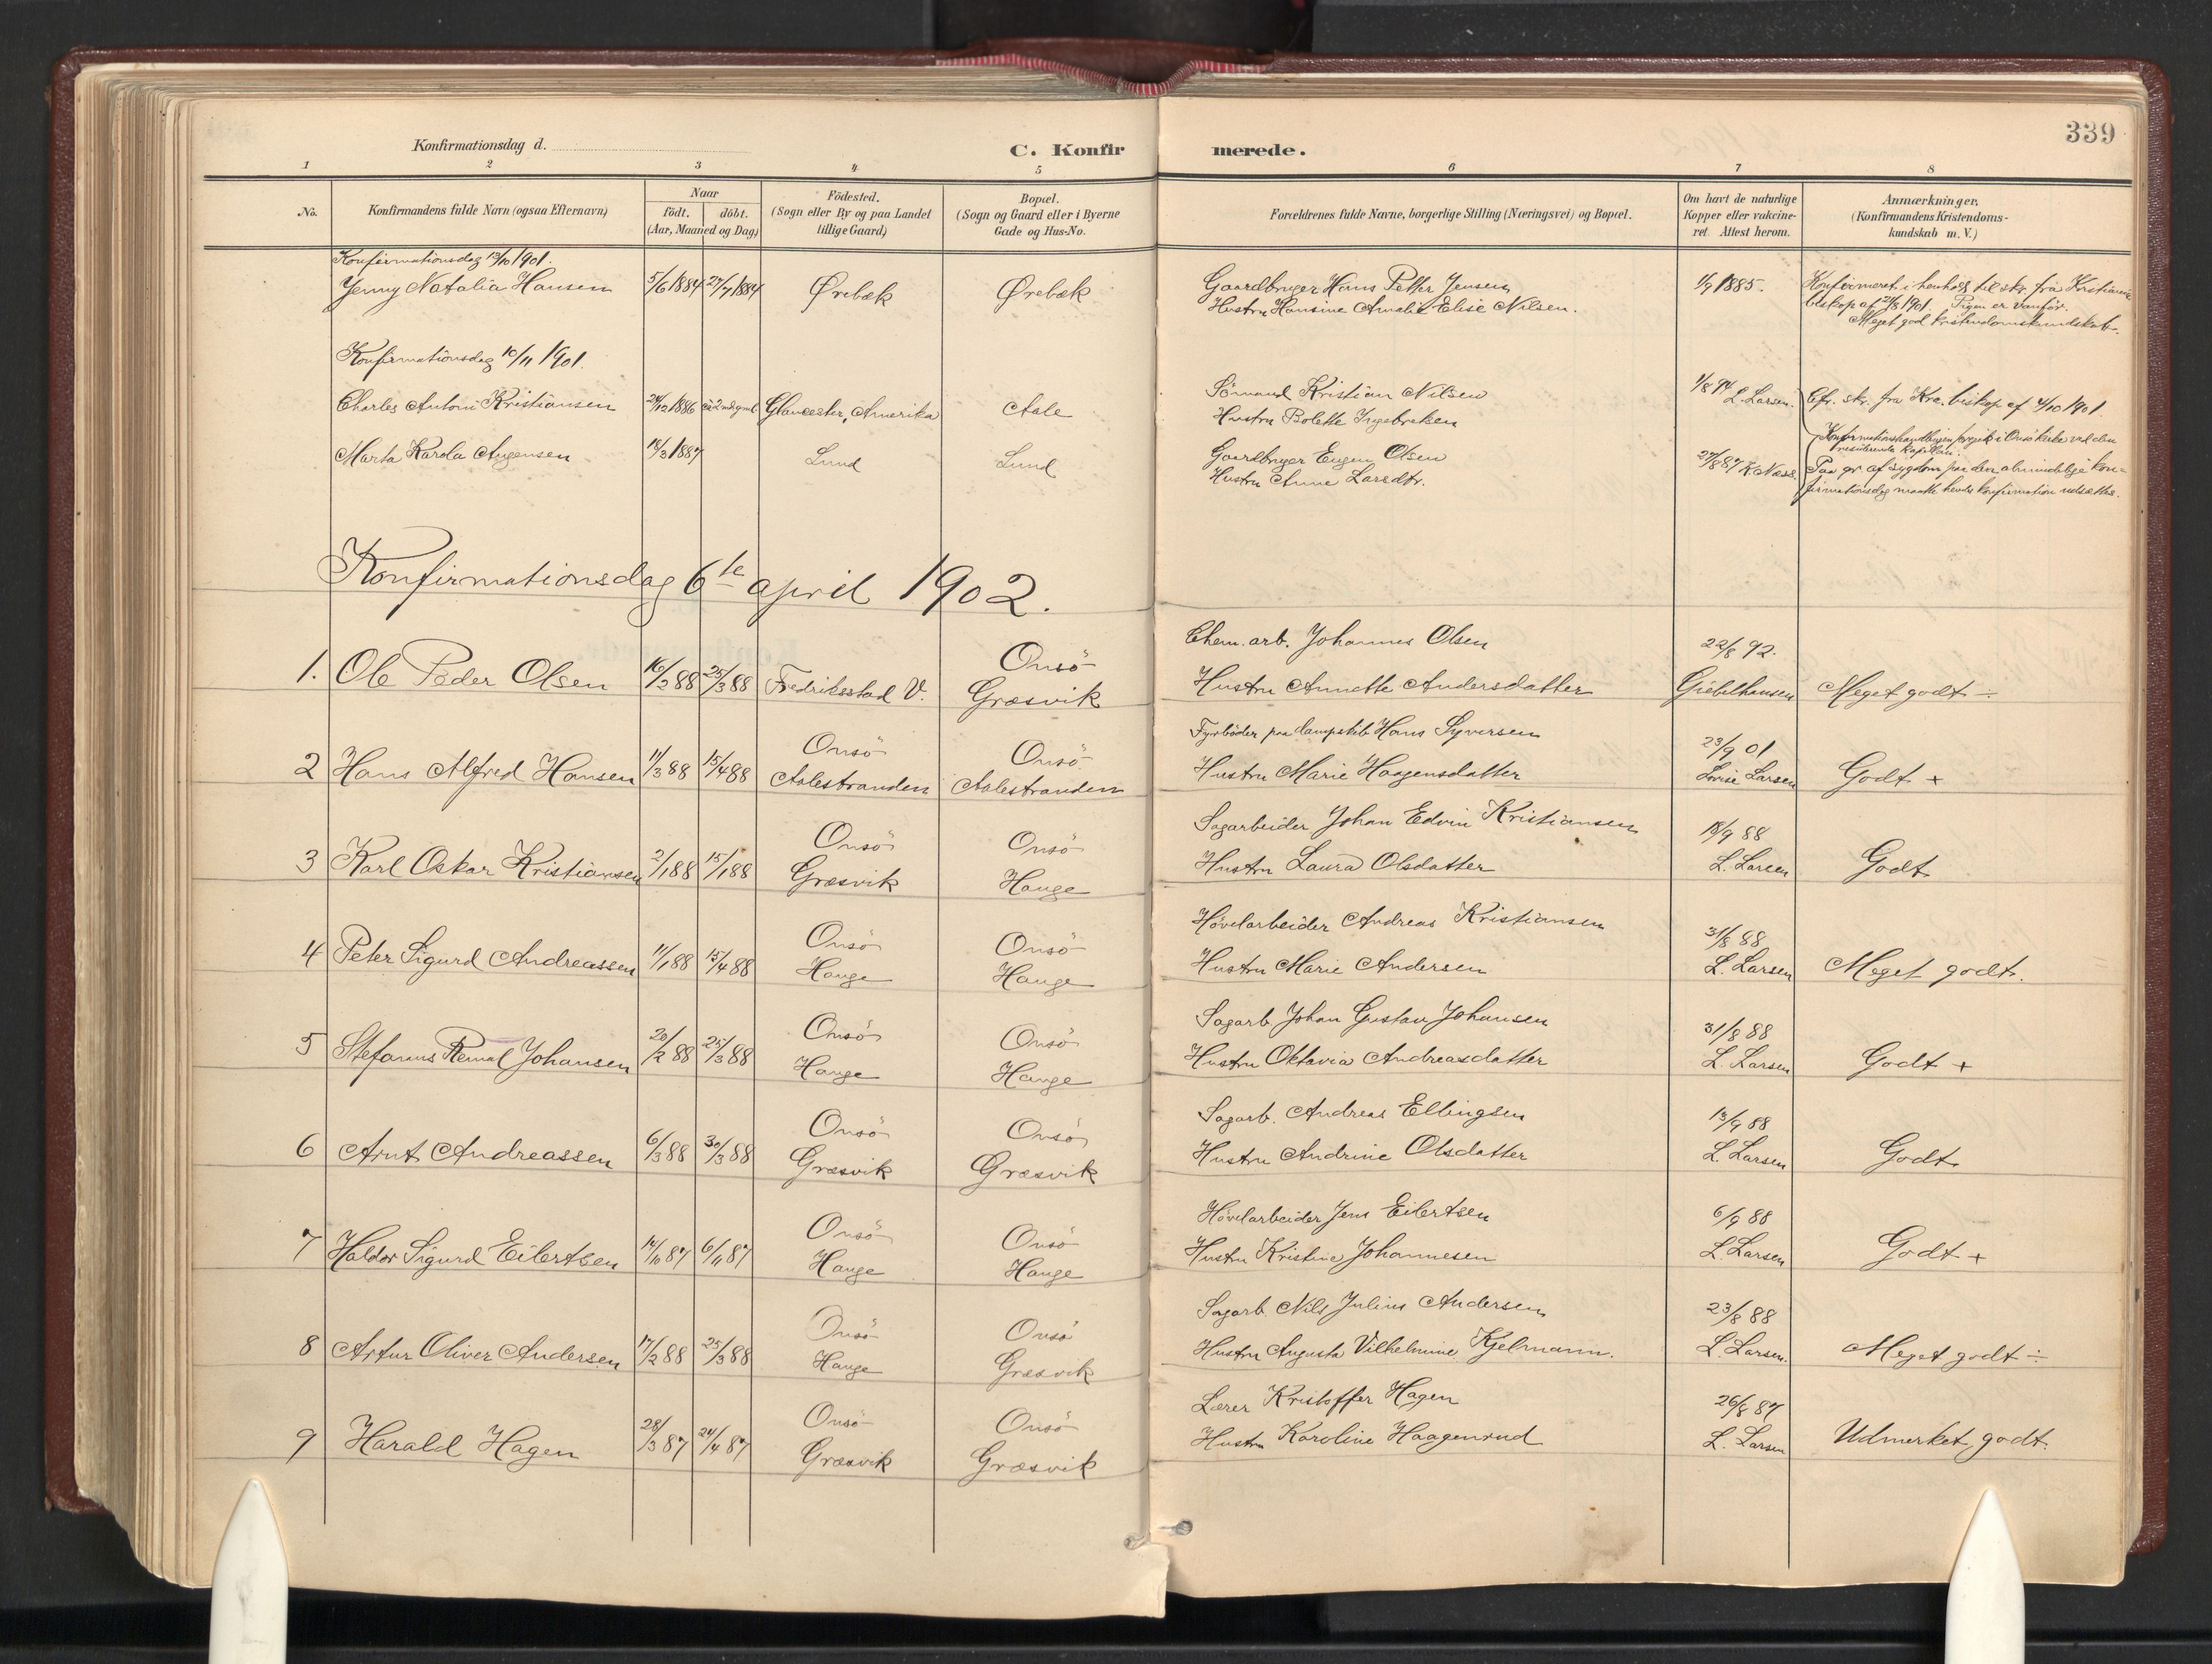 339
Konfirmationsdag d.
C. Konfirmerede.
1 2 3 4 5 6 7 8
No.
Konfirmandens fulde Navn (ogsaa Efternavn)
Naar
födt. döbt.
(Aar, Maaned og Dag)
Födested.
(Sogn eller By og paa Landet
tillige Gaard)
Bopæl.
(Sogn og Gaard eller i Byerne
Gade og Hus-No.
Forældrenes fulde Navne, borgerlige Stilling (Næringsvei) og Bopæl.
Om havt de naturlige
Kopper eller vakcine-
ret Attest herom.
Anmærkninger.
(Konfirmandens Kristendoms-
kundskab m. V.)
Konfirmationsdag 13/10 1901.
Jenny Natalia Hansen 5/6 1884 27/7 1884 Ørebæk Ørebæk
Gaardbruger Hans Petter Jensen
Hustru Hansine Amalie Elise Nilsen.
1/9 1885.
Konfirmeret i henhold til skr. fra Kristiania
biskop af 21/8 1901. Pigen er vanfør.
Meget god kristendomskundskab.
Konfirmationsdag 10/11 1901.
Charles Antoni Kristiansen 24/12 1886 Gloucester, Amerika Aale
Sömand Kristian Nilsen
Hustru Bolette Ingebretsen
1/8 94
L. Larsen.
Cfr. skr. fra Kra. biskop af 4/10 1901.
Marta Karola Augensen 18/3 1887 Lund Lund
Gaardbruger Eugen Olsen
Hustru Anne Larsdtr.
27/8 87 K Næss.
Konfirmationshandlingen foregik i Onsö kirke ved den
residerende kapellan.
Paa gr. af sygdom paa den almindelige kon-
firmationsdag maatte hendes konfirmation udsættes.
Konfirmationsdag 6te april 1902.
1. Ole Peder Olsen 16/2 88 25/3 88 Fredriksstad V. Onsö
Græsvik
Chem. arb. Johannes Olsen
Hustru Annette Andersdatter
22/8 92.
Giebelhausen
Meget godt ÷
2 Hans Alfred Hansen 11/3 88 15/4 88 Onsö
Aalestranden
Onsö
Aalestranden
Fyrböder paa dampskib Hans Syversen
Hustru Marie Haagensdatter
23/9 01
Lovise Larsen
Godt +
3 Karl Oskar Kristiansen 2/1 88 15/1 88 Onsö
Græsvik
Onsö
Hauge
Sagarbeider Johan Edvin Kristiansen
Hustru Laura Olsdatter
18/9 88
L. Larsen
Godt
4 Peter Sigurd Andreassen 11/1 88 15/4 88 Onsö
Hauge
Onsö
Hauge
Hövelarbeider Andreas Kristiansen
Hustru Marie Andersen
31/8 88
L. Larsen
Meget godt.
5 Stefanus Remal Johansen 20/2 88 25/3 88 Onsö
Hauge
Onsö
Hauge
Sagarb. Johan Gustav Johansen
Hustru Oktavia Andreasdatter
31/8 88
L. Larsen
Godt +
6 Arnt Andreassen 6/3 88 30/3 88 Onsö
Græsvik
Onsö
Græsvik
Sagarb. Andreas Ellingsen
Hustru Andrine Olsdatter
13/9 88
L. Larsen
Godt
7 Haldor Sigurd Eilertsen 14/10 87 6/11 87 Onsö
Hauge
Onsö
Hauge
Hövelarbeider Jens Eilertsen
Hustru Kristine Johannesen
6/9 88
L. Larsen
Godt +
8 Artur Oliver Andersen 17/2 88 25/3 88 Onsö
Hauge
Onsö
Græsvik
Sagarb. Nils Julius Andersen
Hustru Augusta Vilhelmine Kjelmann.
23/8 88
L. Larsen.
Meget godt ÷
9 Harald Hagen 28/3 87 24/4 87 Onsö
Græsvik
Onsö
Græsvik
Lærer Kristoffer Hagen
Hustru Karoline Haagenrud
26/8 87
L. Larsen
Udmerket godt.